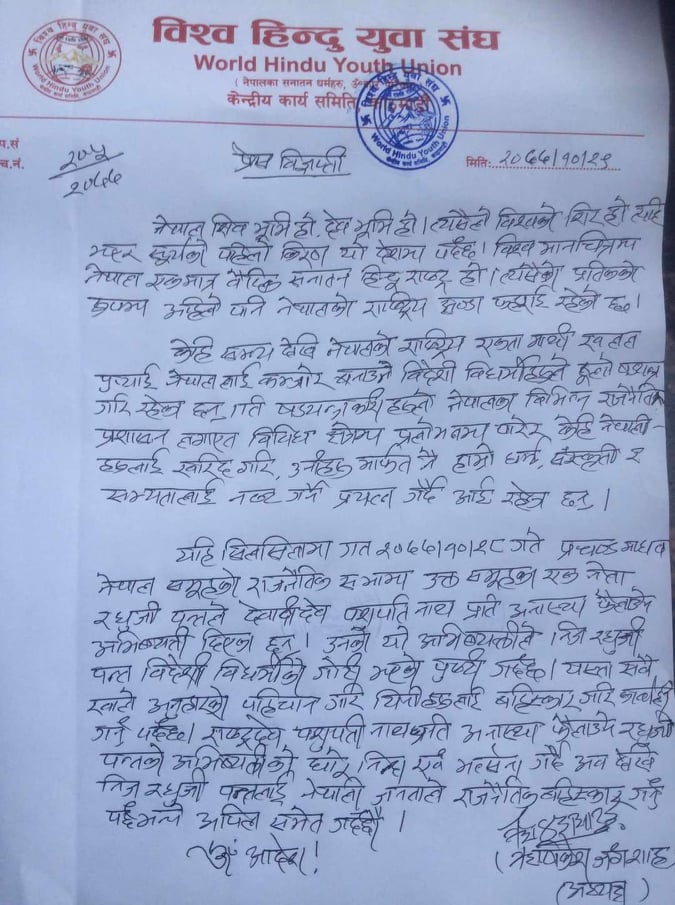 विश्व हिन्दु युवा संघ
World Hindu Youth Union
( नेपालका सनातन धर्महरु,
केन्द्रीय कार्य समिति
विश्व हिन्दु युवा संघ
World Hindu Youth Union
प.सं
च.नं.
२०७७
प्रेस विज्ञप्ती
मितिः २०७७/१०/२९
नेपाल शिव भूमि हो, देव भूमि हो । त्यसैले विश्वको शिर हो त्यहि
सूर्यको पहिलो किरण यो देशमा पर्दछ । विश्व मानचित्रमा
नेपाल एकमात्र वैदिक सनातन हिन्दू राष्ट्र हो । त्यसैको प्रतिकको
रूपमा अहिले पनि नेपालको राष्ट्रिय झण्डा फहराई रहेको छ ।
केहि समय देखि नेपालको राष्ट्रिय एकता माथी खलल
पुर्‍याई नेपाललाई कमजोर बनाउने विदेशी विधर्मीहरुले ठूलो षड्यन्त्र
गरि रहेका छन् । ति षड्यन्त्रकारीहरुले नेपालका विभिन्न राजनैतिक
प्रशासन लगाएत विविध क्षेत्रमा प्रलोभनमा पारेर केहि नेपाली-
हरुलाई खरिद गरि, उनीहरु मार्फत नै हाम्रो धर्म, संस्कृती र
सभ्यतालाई नष्ट गर्ने प्रयत्न गर्दै आई रहेका छन् ।
यहि सिलसिलामा गत २०७७/१०/२८ गते प्रचण्ड माधव
नेपाल समूहको राजनैतिक सभामा उक्त समूहका एक नेता
रघुजी पन्तले देवादीदेव पशुपति नाथ प्रति अनास्था फैलाउने
अभिव्यक्ती दिएका छन् । उनको यो अभिव्यक्तीले निज रघुजी
पन्त विदेशी विधर्मीको गोटी भएको पुष्टी गर्दछ । यस्ता सबै
पहिचान गरि यिनीहरुलाई बहिस्कार गरि कारवाही
गर्नु पर्दछ । राष्ट्रदेव पशुपती नाथ प्रति अनास्था फैलाउने रघुजी
पन्तको अभिव्यक्तीको घोर निन्दा एवं भर्त्सना गर्दै अब देखि
निज रघुजी पन्तलाई नेपाली जनताले राजनैतिक बहिस्कार गर्नु
पर्दछ भन्ने अपिल समेत गर्दछौं ।
ॐ आदेश !
जंग शाह
(अध्यक्ष)